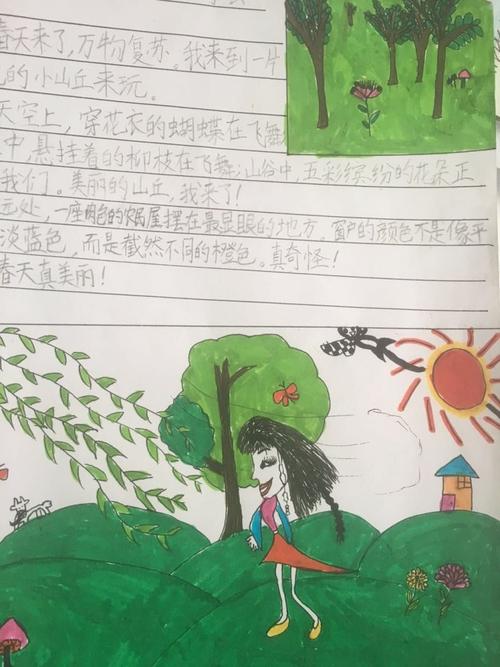 春天来了，万物复苏。我来到一片
的小山丘来玩。
天空上，穿花衣的蝴蝶在飞舞
中，悬挂着的柳枝在飞舞；山谷中，五彩缤纷的花朵正
我们。美丽的山丘，我来了！
远处，一座肉色的农房屋摆在最显眼的地方。窗户的颜色不是像平
淡蓝色，而是截然不同的橙色。真奇怪！
春天真美丽！